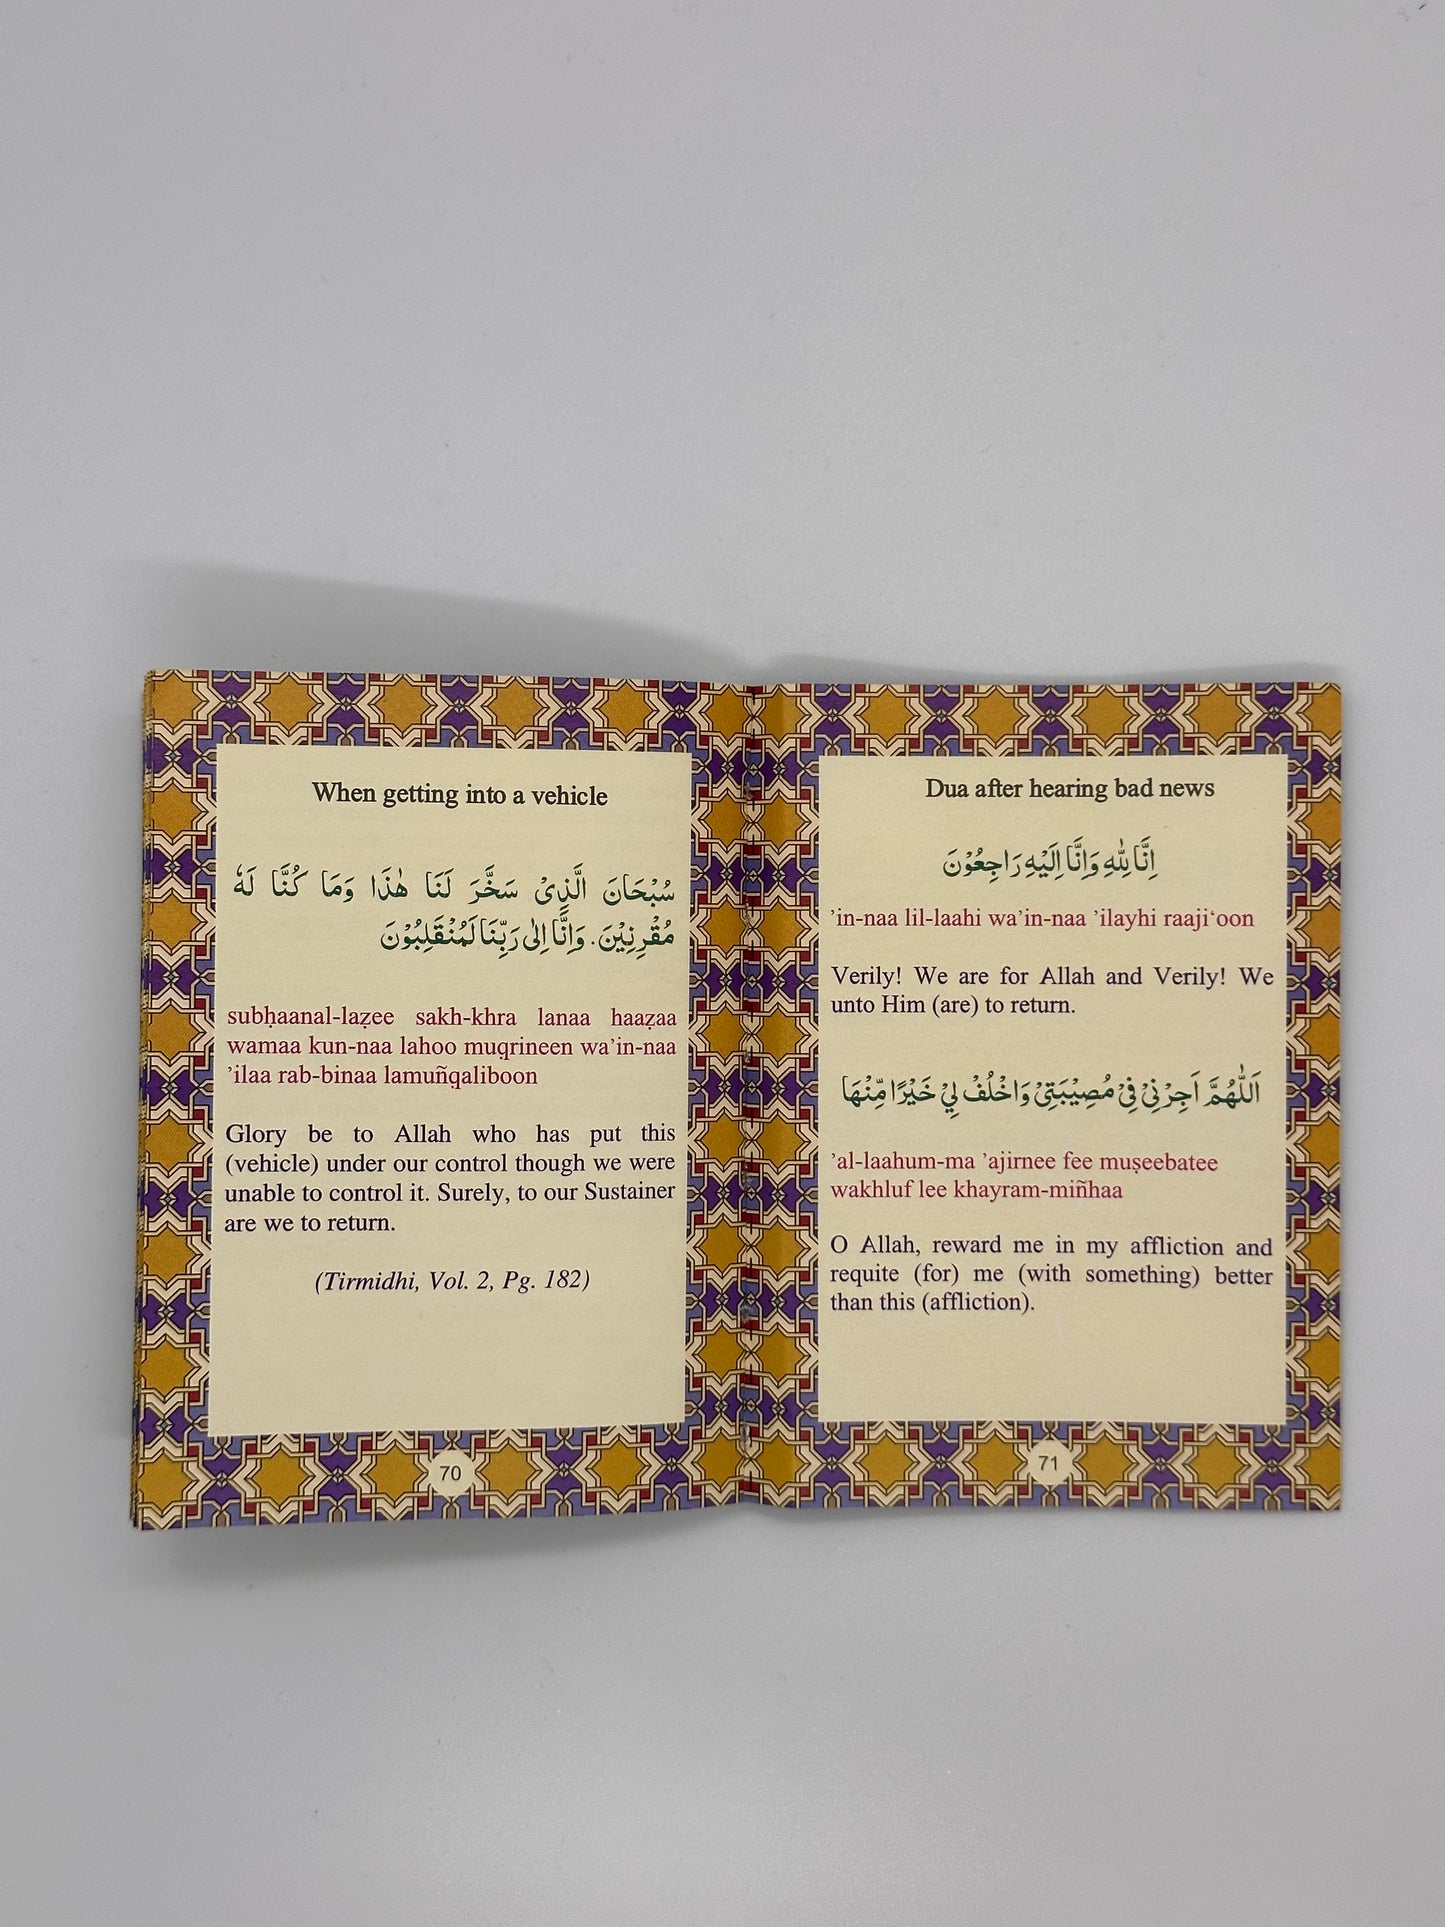 When getting into a vehicle
سُبْحَانَ الَّذِىْ سَخَّرَ لَنَا هٰذَا وَمَا كُنَّا لَهٗ
مُقْرِنِيْنَ. وَاِنَّا اِلٰى رَبِّنَا لَمُنْقَلِبُوْنَ
subḥaanal-laẓee sakh-khra lanaa haaẓaa
wamaa kun-naa lahoo muqrineen wa’in-naa
’ilaa rab-binaa lamuñqaliboon
Glory be to Allah who has put this
(vehicle) under our control though we were
unable to control it. Surely, to our Sustainer
are we to return.
(Tirmidhi, Vol. 2, Pg. 182)
70
Dua after hearing bad news
اِنَّا لِلّٰهِ وَاِنَّا اِلَيْهِ رَاجِعُوْنَ
’in-naa lil-laahi wa’in-naa ’ilayhi raaji‘oon
Verily! We are for Allah and Verily! We
unto Him (are) to return.
اَللّٰهُمَّ اَجِرْنِىْ فِىْ مُصِيْبَتِىْ وَاخْلُفْ لِيْ خَيْرًا مِّنْهَا
’al-laahum-ma ’ajirnee fee muṣeebatee
wakhluf lee khayram-miñhaa
O Allah, reward me in my affliction and
requite (for) me (with something) better
than this (affliction).
71